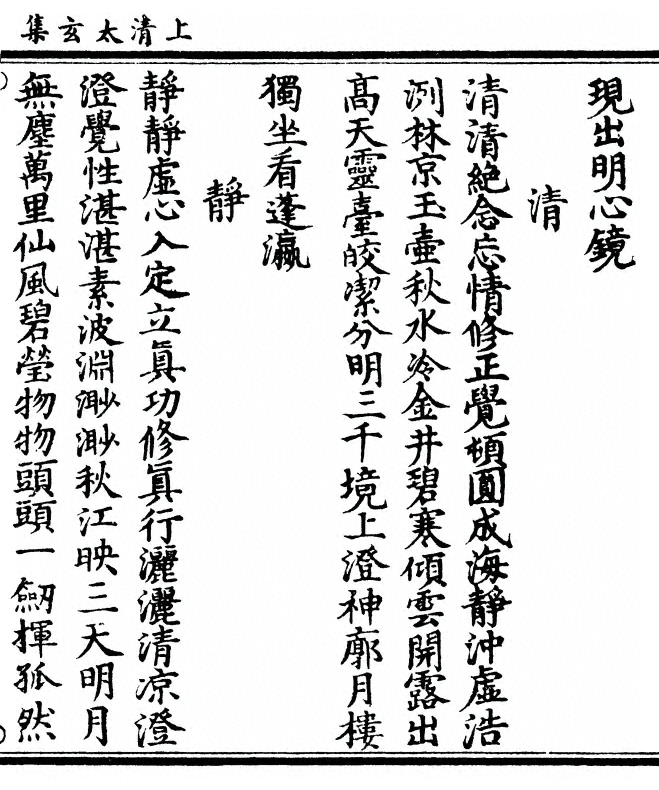 上清太玄集
現出明心鏡
清
清清絶念忘情修正覺頓圓成海靜沖虛浩
洌林京玉壺秋水冷金井碧寒傾雲開露出
高天靈臺皎潔分明三千境上澄神廓月樓
獨坐看蓬瀛
靜
靜靜虛心入定立真功修真行灑灑清凉澄
澄覺性湛湛素波淵渺渺秋江映三天明月
無塵萬里仙風碧瑩物物頭頭一劒揮孤然